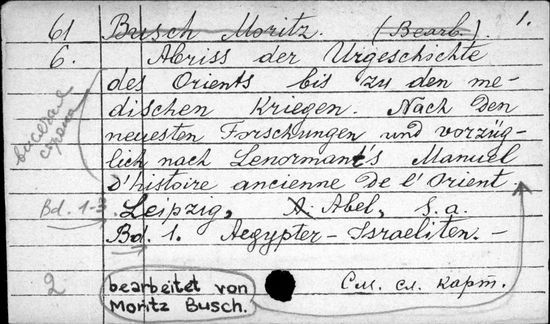 61 Busch Moritz. (Bearb.) 1.
6. Abriss der Urgeschichte
des Orients bis zu den me-
dischen Kriegen. Nach den
neuesten Forschungen und vorzüg-
lich nach Lenormant's Manuel
d'histoire ancienne de l'Orient.
Bd. 1-3 Leipzig, A. Abel, s.a.
Bd. 1. Aegypter-Israeliten. -
2 bearbeitet von
Moritz Busch.
См. сл. карт.